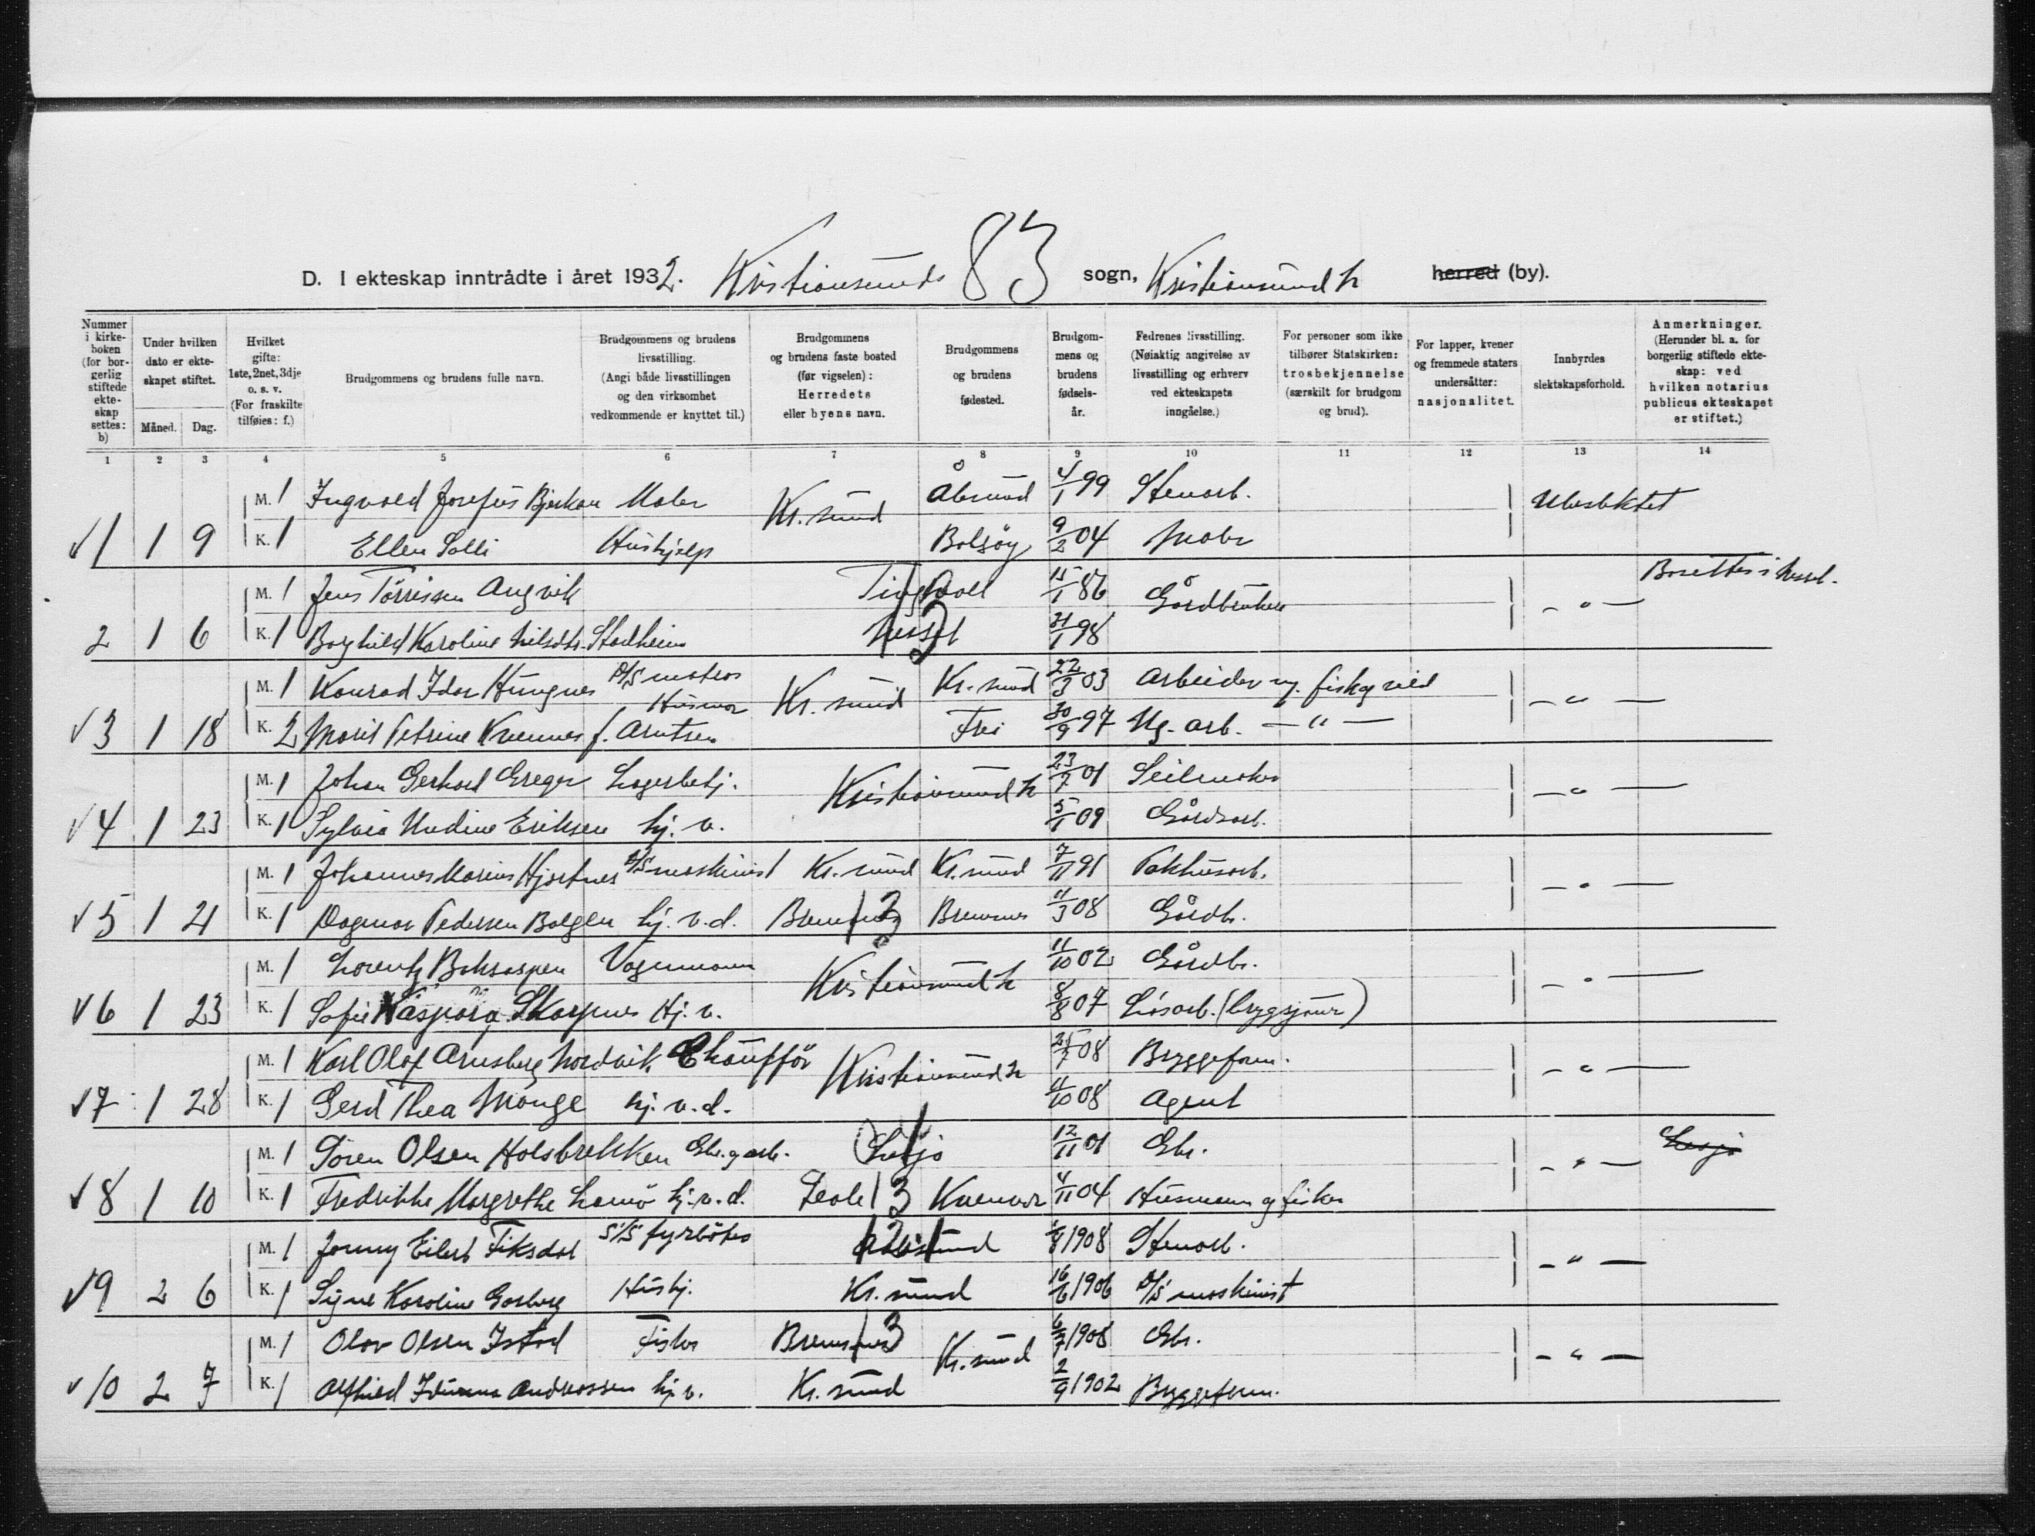 D. I ekteskap inntrådte i året 1932. Kristiansunds 83 sogn, Kristiansund N herred (by).
Nummer i kirkeboken (for borgerlig stiftede ekteskap settes: b)
Under hvilken dato er ekteskapet stiftet.
Måned.
Dag.
Hvilket gifte: 1ste, 2net, 3dje o. s. v. (For fraskilte tilføies: f.)
Brudgommens og brudens fulle navn.
Brudgommens og brudens livsstilling. (Angi både livsstillingen og den virksomhet vedkommende er knyttet til.)
Brudgommens og brudens faste bosted (før vigselen): Herredets eller byens navn.
Brudgommens og brudens fødested.
Brudgommens og brudens fødselsår.
Fedrenes livsstilling. (Nøiaktig angivelse av livsstilling og erhverv ved ekteskapets inngåelse.)
For personer som ikke tilhører Statskirken: trosbekjennelse (særskilt for brudgom og brud).
For lapper, kvener og fremmede staters undersåtter: nasjonalitet.
Innbyrdes slektskapsforhold.
Anmerkninger. (Herunder bl. a. for borgerlig stiftede ekteskap: ved hvilken notarius publicus ekteskapet er stiftet.)
1 2 3 4 5 6 7 8 9 10 11 12 13 14
M. 1 Ingvald Josefus Bjerkan Maler Kr. sund Ålesund 4/1 99 Stenarb. Ubeslektet
√1 1 9 K. 1 Ellen Solli Hushjelp Bolsøy 9/2 04 Maler
M. 1 Jens Tørrissen Angvik Tingvoll 15/1 86 Gårdbruker - " - Bosetter i Nesset.
2 1 6 K. 1 Borghild Karoline Nilsdtr. Stadheim Nesset 3 31/1 98
M. 1 Konrad Idar Hungnes D/S matros Kr. sund Kr. sund 22/3 03 Arbeider
√3 1 18 K. 2 Marit Petrine Kvennes f. Arntsen Husmor Frei 30/9 97 - " - - " -
M. 1 Johan Gerhard Greger Lagerbetj. Kristiansund N 23/7 01 Seilmaker - " -
√4 1 23 K. 1 Sylvia Undine Eriksen hj. v. 5/1 09 Gårdsarb.
M. 1 Johannes Marius Hjortnes D/S maskinist Kr. sund Kr. sund 7/11 91 Pakhusarb. - " -
√5 1 21 K. 1 Dagmar Pedersen Bolgen hj. v. d. Bremsnes 13 Bremsnes 11/3 08 Gårdbr.
M. 1 Lorentz Boksaspen Vognmann Kristiansund N 11/10 02 Gårdbr. - " -
√6 1 23 K. 1 Sofie Skarpnes Hj. v. 8/8 07 Løsarb. (bryggsjauer)
M. 1 Karl Olaf Arnsberg Nordvik Chauffør Kristiansund N 25/7 08 Byggeform. - " -
√7 1 28 K. 1 Gerd Thea Monge hj. v. d. 11/10 08 Agent
M. 1 Søren Olsen Holsbrekken Gbr. g. arb. Lesja 12/11 01 Gbr. - " - Lesja
√8 1 10 K. 1 Fredrikke Margrethe hj. v. d. 13 Kvernes 4/11 04 Husmann og fisker
M. 1 Jonny Eilert Fiksdal S/S fyrbøter Ålesund 1908 Stenarb. - " -
√9 2 6 K. 1 Signe Karoline Gasberg Hushj. Kr. sund 16/6 1906 D/S maskinist
M. 1 Olav Olsen Istad Fisker Bremsnes 13 Kr. sund 6/7 1908 Gbr. - " -
√10 2 7 K. 1 Alfhild Andreassen hj. v. Kr. sund 2/9 1902 Byggeform.